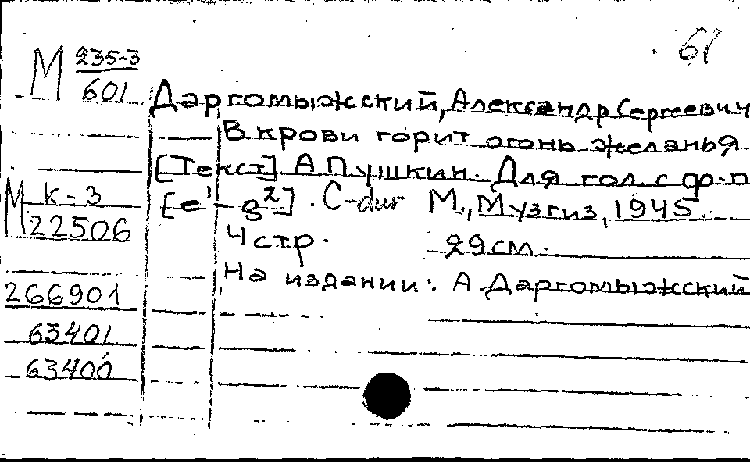 61
М 235-3
601
Даргомыжский, Александр Сергеевич
В крови горит огонь желанья
[Текст] А Пушкин. Для гол. с ф-п
М К-3 [e¹-g²]. C-dur М., Музгиз, 1945.
22506 4 стр. 29 см.
На издании: А. Даргомыжский
266901
63401
63400